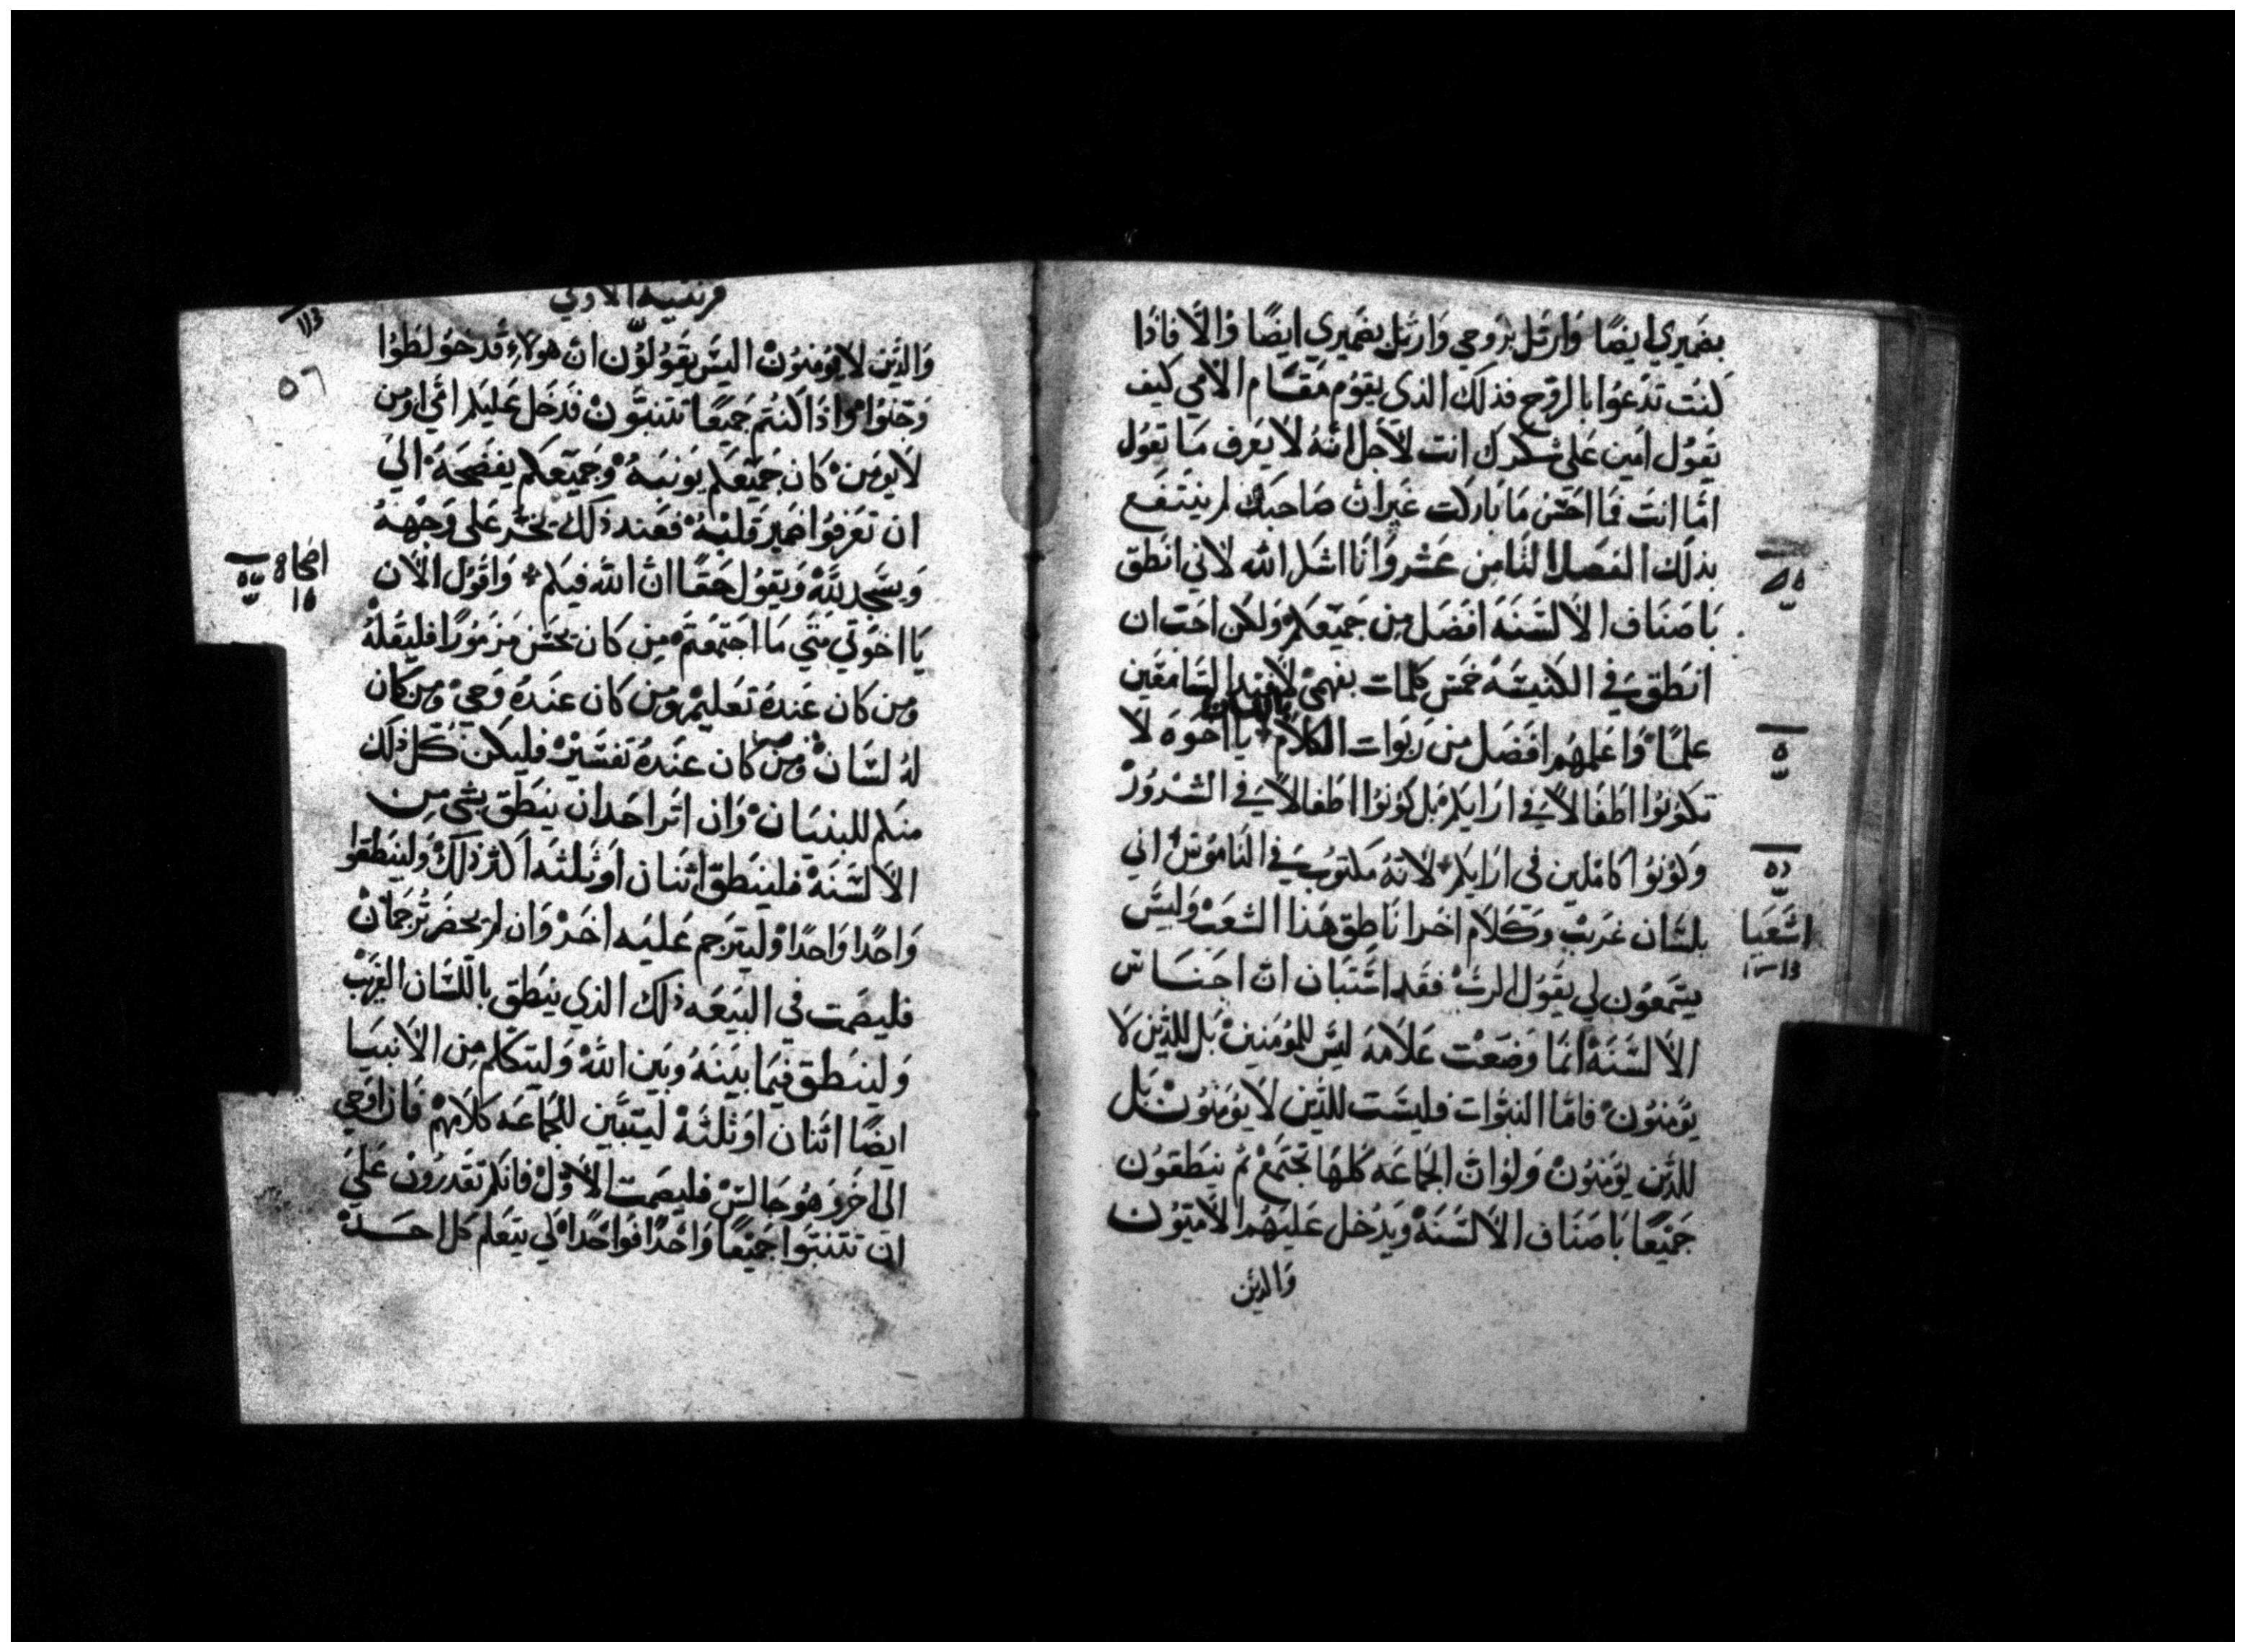 بضميري ايضًا وارتل بروحي وارتل بضميري ايضًا والّا فاذا
كنت تدعوا بالروح فذلك الذي يقوم مقام الامي كيف
يقول امين على شكرك انت لاجل انه لا يعرف ما تقول
امّا انت فما احسن ما باركت غير ان صاحبك لم ينتفع
بذلك الفصل الثامن عشر وانا اشكر الله لاني انطق
باصناف الالسنة افضل من جميعكم ولكن احب ان
انطق في الكنيسة خمس كلمات بفهمي لافيد السامعين
علمًا واعلمهم افضل من ربوات الكلام يا اخوه لا
تكونوا اطفالًا في ارايكم بل كونوا اطفالًا في الشرور
وكونوا كاملين في ارايكم لانه مكتوب في الناموس اني
بلسان غريب وكلام اخر اناطق هذا الشعب وليس
يسمعون لي يقول الرب فقد استبان ان اجناس
الالسنة انما وضعت علامة ليس للمومنين بل للذين لا
يومنون فامّا النبوات فليست للذين لا يومنون بل
للذين يومنون ولو ان الجماعه كلها تجتمع ثم ينطقون
جميعًا باصناف الالسنة ويدخل عليهم الاميّون
والذين
اشعيا
قرنتيه الاولي
والذين لا يومنون اليس يقولون ان هولاء قد خولطوا
وجنوا واذا كنتم جميعًا تتنبّون فدخل عليكم امّي او من
لا يومن كان جميعكم يونبه وجميعكم يفضحه الى
ان تعرفوا ضمير قلبه فعند ذلك يخر على وجهه
ويسجد لله ويقول حقًا ان الله فيكم واقول الان
يا اخوتي متي ما اجتمعتم من كان يحسن مزمورًا فليقله
ومن كان عنده تعليم ومن كان عنده وحي ومن كان
له لسان ومن كان عنده تفسير فليكن كل ذلك
منكم للبنيان وان اثر احد ان ينطق بشي من
الالسنة فلينطق اثنان او ثلثه اكثر ذلك ولينطقوا
واحدًا واحدًا وليترجم عليه اخر وان لم يحضر ترجمان
فليصمت في البيعه ذلك الذي ينطق باللسان الغريب
ولينطق فيما بينه وبين الله وليتكلم من الانبيا
ايضًا اثنان او ثلثه ليتبين للجماعه كلامهم فان اوحي
الى اخر وهو جالس فليصمت الاوّل فانكم تقدرون على
ان تتنبوا جميعًا واحدًا فواحدًا لكي يتعلم كل احد
٥٦